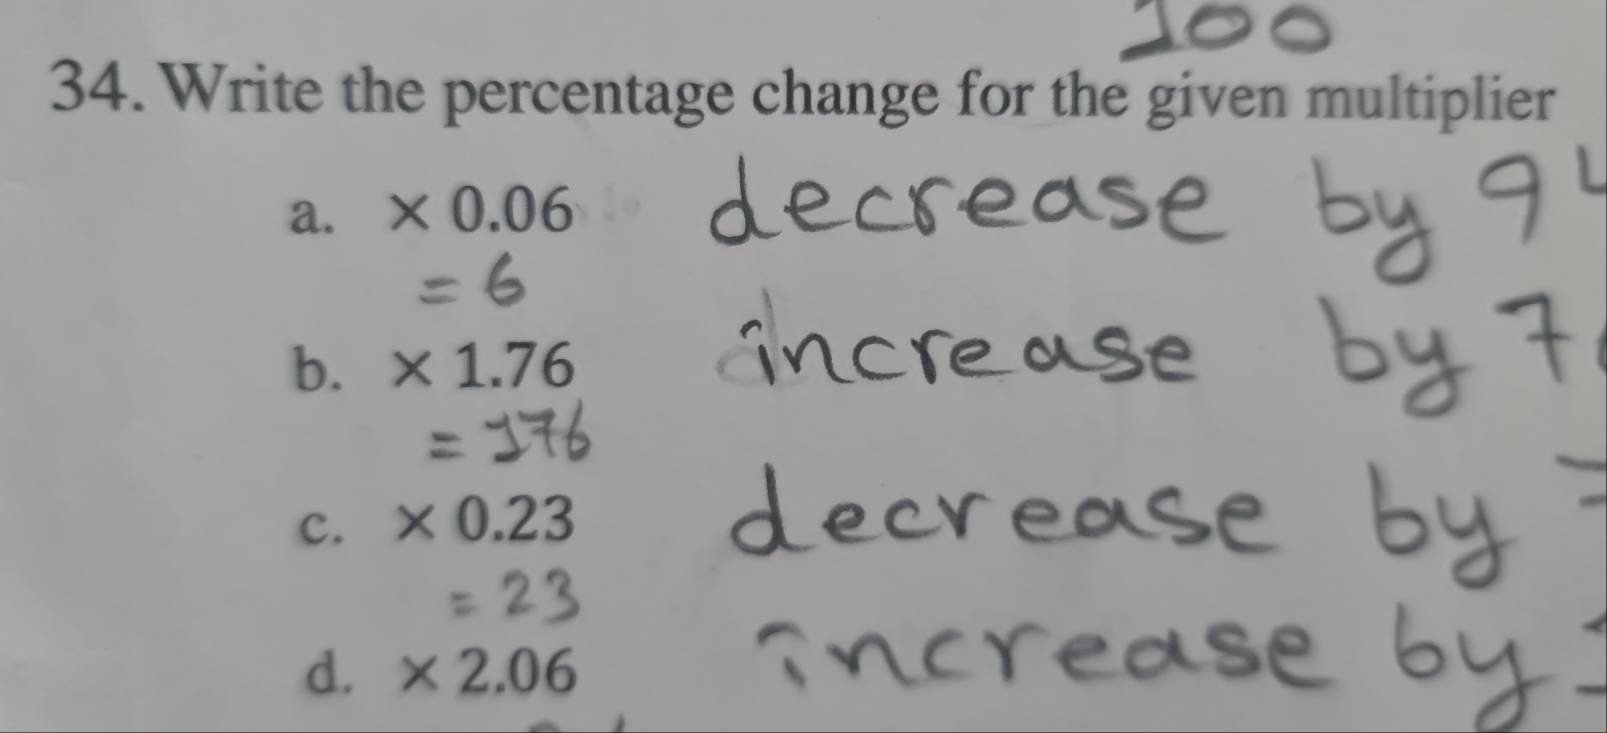 100
34. Write the percentage change for the given multiplier
a. × 0.06 decrease by 94
= 6
b. × 1.76 increase by 7
= 176
c. × 0.23 decrease by
= 23
d. × 2.06 increase by